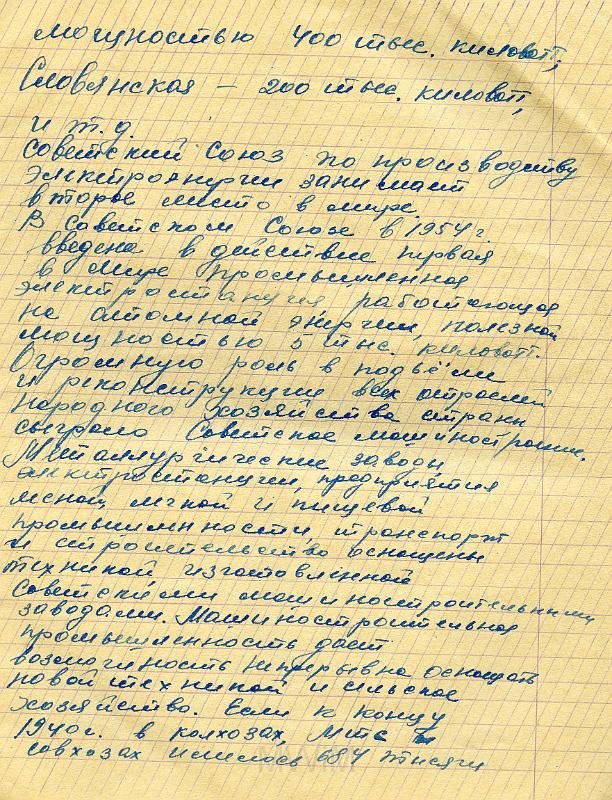 мощностью 400 тыс. киловатт,
Словянская – 200 тыс. киловатт,
и т.д.
Советский Союз по производству
электроэнергии занимает
второе место в мире.
В Советском Союзе в 1954 г.
введена в действие первая
в мире промышленная
электростанция работающая
на атомной энергии, полезной
мощностью 5 тыс. киловатт.
Огромную роль в подъёме
и реконструкции всех отраслей
народного хозяйства страны
сыграло Советское машиностроение.
Металлургические заводы,
электростанции, предприятия
лесной, легкой и пищевой
промышленности, транспорт
и строительство оснащены
техникой изготовленной
советскими машиностроительными
заводами. Машиностроительная
промышленность дает
возможность непрерывно оснащать
новой техникой и сельское
хозяйство. Если к концу
1940 г. в колхозах, МТС и
совхозах имелось 684 тысячи